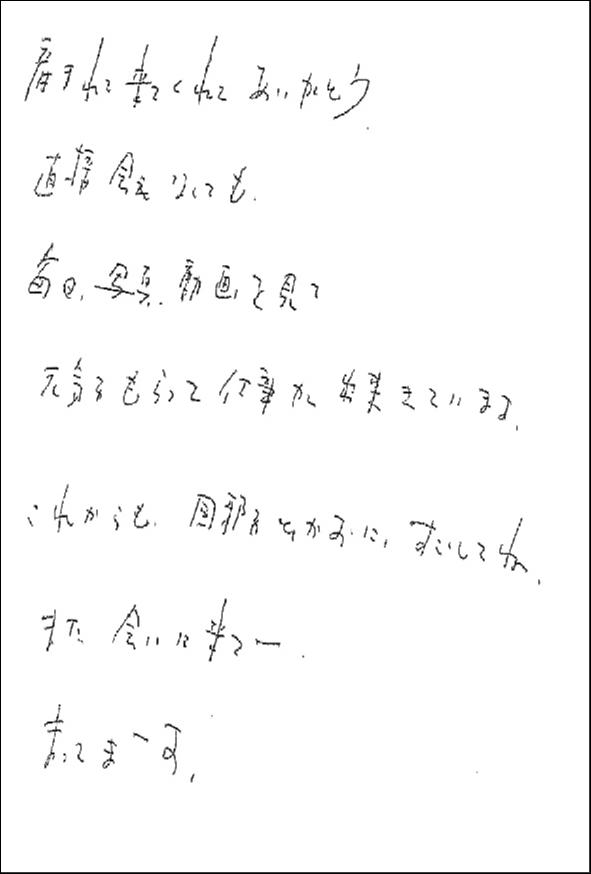 産まれて来てくれてありがとう
直接会えなくても、
毎日、写真、動画を見て
元気をもらって仕事が出来ています。
これからも、風邪をひかずに、すごしてね。
また会いに来てー。
待ってまーす。